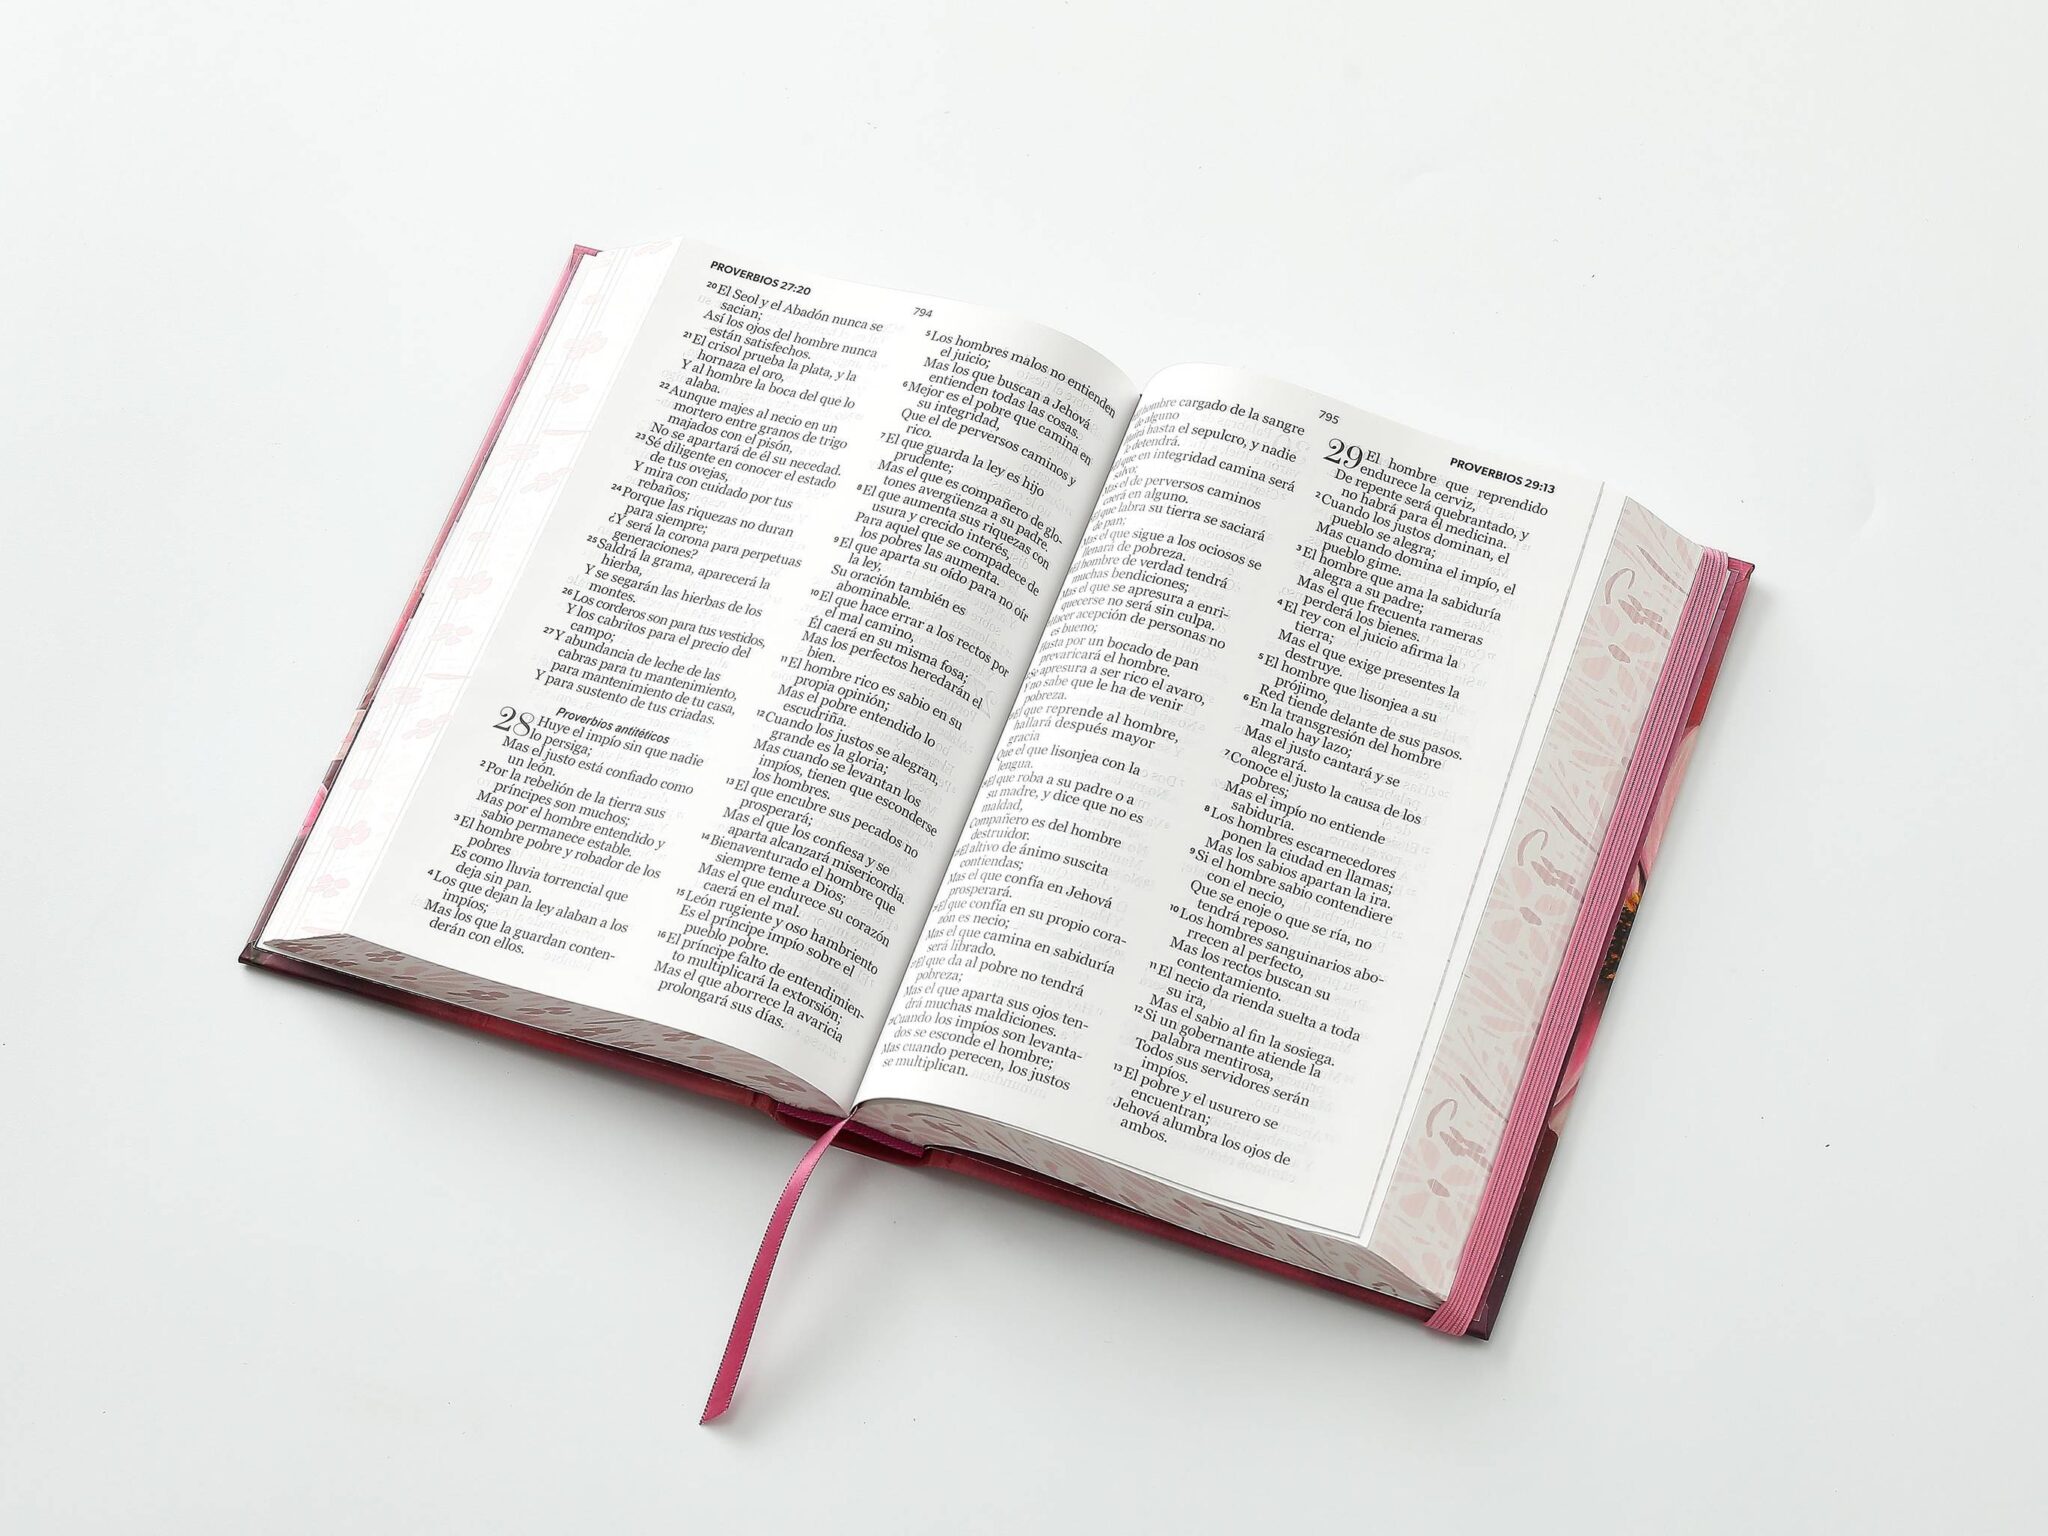 PROVERBIOS 27:20
794
20 El Seol y el Abadón nunca se
sacian;
Así los ojos del hombre nunca
están satisfechos.
21 El crisol prueba la plata, y la
hornaza el oro,
Y al hombre la boca del que lo
alaba.
22 Aunque majes al necio en un
mortero entre granos de trigo
majados con el pisón,
No se apartará de él su necedad.
23 Sé diligente en conocer el estado
de tus ovejas,
Y mira con cuidado por tus
rebaños;
24 Porque las riquezas no duran
para siempre;
¿Y será la corona para perpetuas
generaciones?
25 Saldrá la grama, aparecerá la
hierba,
Y se segarán las hierbas de los
montes.
26 Los corderos son para tus vestidos,
Y los cabritos para el precio del
campo;
27 Y abundancia de leche de las
cabras para tu mantenimiento,
para mantenimiento de tu casa,
Y para sustento de tus criadas.
Proverbios antitéticos
28 Huye el impío sin que nadie
lo persiga;
Mas el justo está confiado como
un león.
2 Por la rebelión de la tierra sus
príncipes son muchos;
Mas por el hombre entendido y
sabio permanece estable.
3 El hombre pobre y robador de los
pobres
Es como lluvia torrencial que
deja sin pan.
4 Los que dejan la ley alaban a los
impíos;
Mas los que la guardan conten-
derán con ellos.
5 Los hombres malos no entienden
el juicio;
Mas los que buscan a Jehová
entienden todas las cosas.
6 Mejor es el pobre que camina en
su integridad,
Que el de perversos caminos y
rico.
7 El que guarda la ley es hijo
prudente;
Mas el que es compañero de glo-
tones avergüenza a su padre.
8 El que aumenta sus riquezas con
usura y crecido interés,
Para aquel que se compadece de
los pobres las aumenta.
9 El que aparta su oído para no oír
la ley,
Su oración también es
abominable.
10 El que hace errar a los rectos por
el mal camino,
Él caerá en su misma fosa;
Mas los perfectos heredarán el
bien.
11 El hombre rico es sabio en su
propia opinión;
Mas el pobre entendido lo
escudriña.
12 Cuando los justos se alegran,
grande es la gloria;
Mas cuando se levantan los
impíos, tienen que esconderse
los hombres.
13 El que encubre sus pecados no
prosperará;
Mas el que los confiesa y se
aparta alcanzará misericordia.
14 Bienaventurado el hombre que
siempre teme a Dios;
Mas el que endurece su corazón
caerá en el mal.
15 León rugiente y oso hambriento
Es el príncipe impío sobre el
pueblo pobre.
16 El príncipe falto de entendimien-
to multiplicará la extorsión;
Mas el que aborrece la avaricia
prolongará sus días.
795
PROVERBIOS 29:13
hombre cargado de la sangre
de alguno
Huirá hasta el sepulcro, y nadie
le detendrá.
El que en integridad camina será
salvo;
Mas el de perversos caminos
caerá en alguno.
El que labra su tierra se saciará
de pan;
Mas el que sigue a los ociosos se
llenará de pobreza.
El hombre de verdad tendrá
muchas bendiciones;
Mas el que se apresura a enri-
quecerse no será sin culpa.
Hacer acepción de personas no
es bueno;
Hasta por un bocado de pan
prevaricará el hombre.
Se apresura a ser rico el avaro,
Y no sabe que le ha de venir
pobreza.
El que reprende al hombre,
hallará después mayor
gracia
Que el que lisonjea con la
lengua.
El que roba a su padre o a
su madre, y dice que no es
maldad,
Compañero es del hombre
destruidor.
El altivo de ánimo suscita
contiendas;
Mas el que confía en Jehová
prosperará.
El que confía en su propio cora-
zón es necio;
Mas el que camina en sabiduría
será librado.
El que da al pobre no tendrá
pobreza;
Mas el que aparta sus ojos ten-
drá muchas maldiciones.
Cuando los impíos son levanta-
dos se esconde el hombre;
Mas cuando perecen, los justos
se multiplican.
29 El hombre que reprendido
endurece la cerviz,
De repente será quebrantado, y
no habrá para él medicina.
2 Cuando los justos dominan, el
pueblo se alegra;
Mas cuando domina el impío, el
pueblo gime.
3 El hombre que ama la sabiduría
alegra a su padre;
Mas el que frecuenta rameras
perderá los bienes.
4 El rey con el juicio afirma la
tierra;
Mas el que exige presentes la
destruye.
5 El hombre que lisonjea a su
prójimo,
Red tiende delante de sus pasos.
6 En la transgresión del hombre
malo hay lazo;
Mas el justo cantará y se
alegrará.
7 Conoce el justo la causa de los
pobres;
Mas el impío no entiende
sabiduría.
8 Los hombres escarnecedores
ponen la ciudad en llamas;
Mas los sabios apartan la ira.
9 Si el hombre sabio contendiere
con el necio,
Que se enoje o que se ría, no
tendrá reposo.
10 Los hombres sanguinarios abo-
rrecen al perfecto,
Mas los rectos buscan su
contentamiento.
11 El necio da rienda suelta a toda
su ira,
Mas el sabio al fin la sosiega.
12 Si un gobernante atiende la
palabra mentirosa,
Todos sus servidores serán
impíos.
13 El pobre y el usurero se
encuentran;
Jehová alumbra los ojos de
ambos.